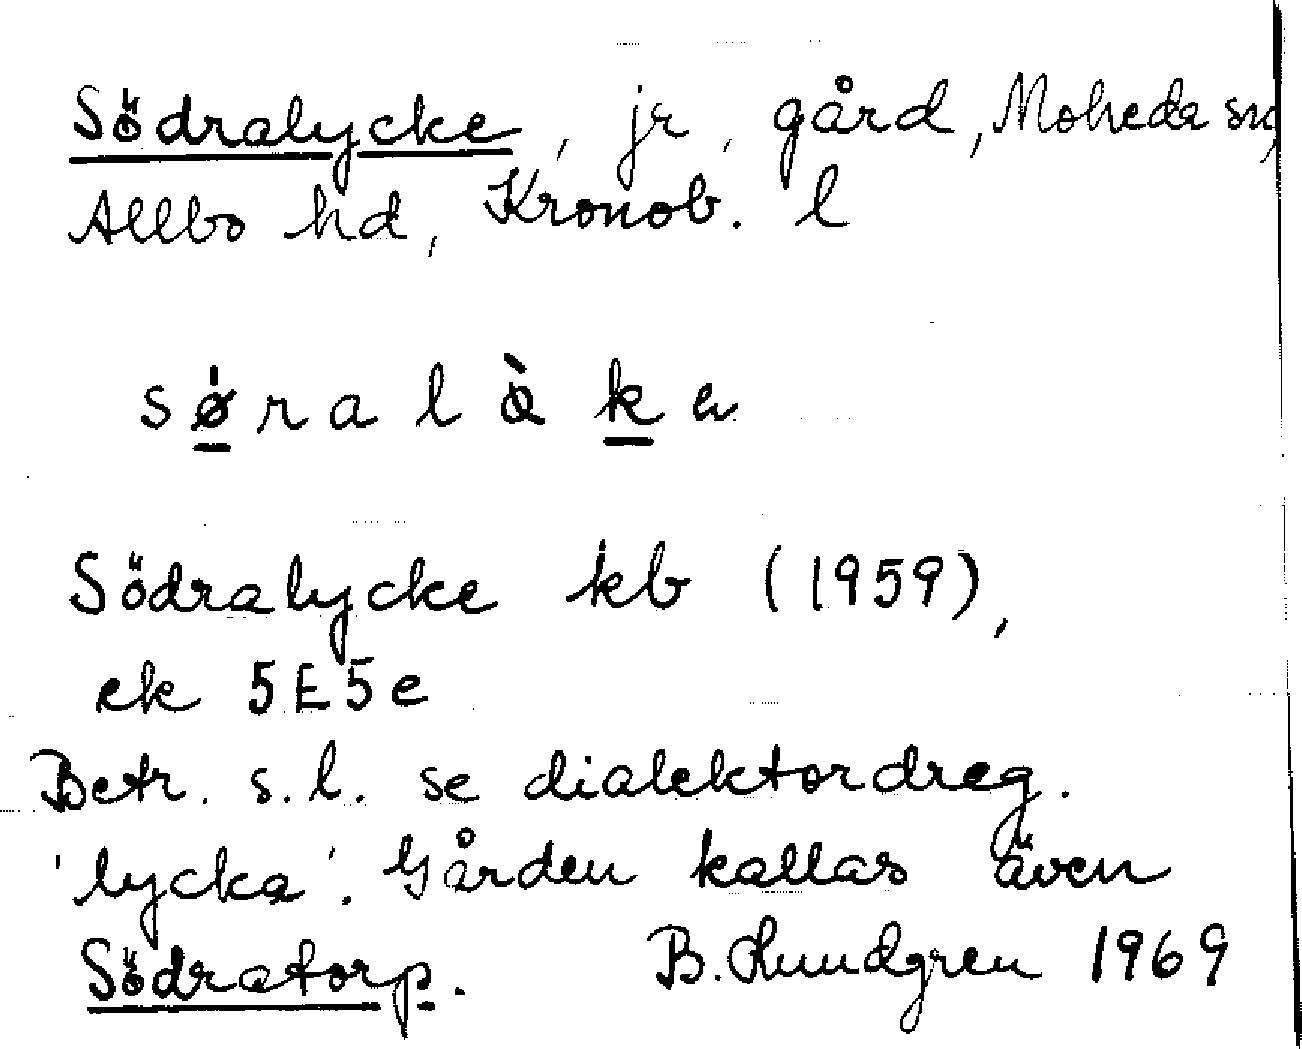 Södralycke, jr, gård, Moheda sn,
Allbo hd, Kronob. l
søralòka
Södralycke kb (1959),
ek 5E5e
Betr. s.l. se dialektordreg.
'lycka'. Gården kallas även
Södratorp. B. Rundgren 1969